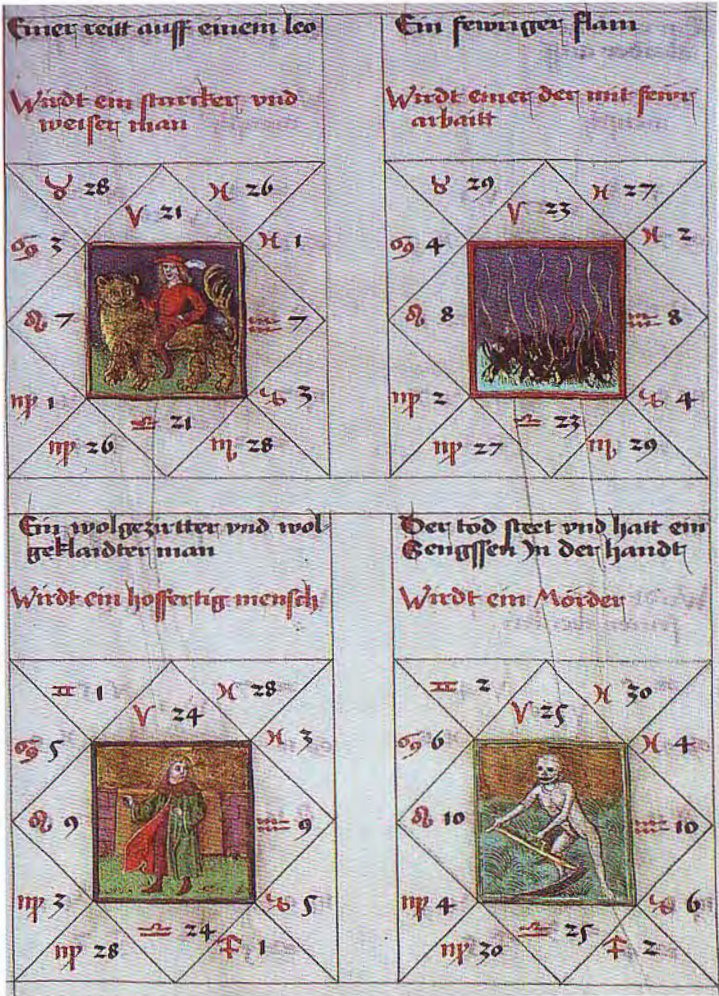 Einer reitt auff einem leo
Wirdt ein starcker vnd
weiser man
♉ 28
♈ 21
♓ 26
♋ 3
♓ 1
♌ 7
♒ 7
♍ 1
♑ 3
♍ 26
♎ 21
♏ 28
Ein fewriger flam
Wirdt einer der mit fewr
arbaitt
♉ 29
♈ 23
♓ 27
♋ 4
♓ 2
♌ 8
♒ 8
♍ 2
♑ 4
♍ 27
♎ 23
♏ 29
Ein wolgezirtter vnd wol-
geklaidter man
Wirdt ein hoffertig mensch
♊ 1
♈ 24
♓ 28
♋ 5
♓ 3
♌ 9
♒ 9
♍ 3
♑ 5
♍ 28
♎ 24
♐ 1
Der tod steet vnd hatt ein
Sengssen Jn der handt
Wirdt ein Mörder
♊ 2
♈ 25
♓ 30
♋ 6
♓ 4
♌ 10
♒ 10
♍ 4
♑ 6
♍ 30
♎ 25
♐ 2